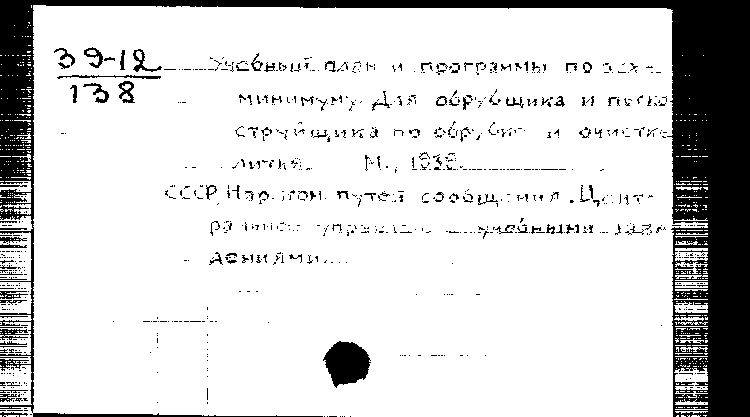 39-12
138
Учебный план и программы по тех-
минимуму для обрубщика и песко
струйщика по обрубке и очистке
литья. М., 1938.
СССР, Нарком. путей сообщения. Цент-
ральное управление учебными заве
дениями.